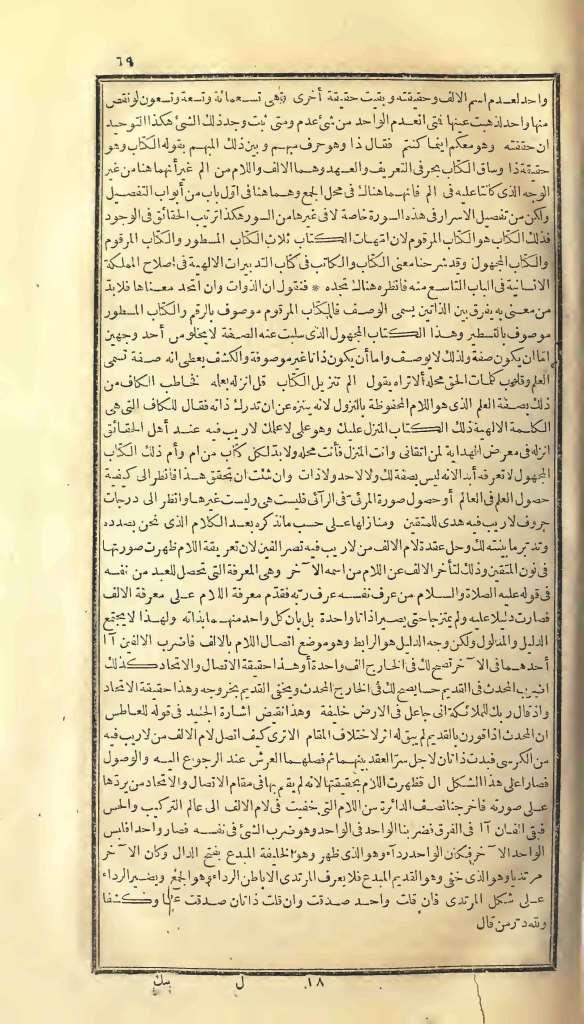 ٦٩
واحد لعدم اسم الالف وحقيقته وبقيت حقيقة أخرى وهى تسعمائة وتسعة وتسعون لو نقص
منها واحد لذهبت عينها فتى انعدم الواحد من شئ عدم ومتى ثبت وجد ذلك الشئ هكذا التوحيد
ان حققته وهو معكم اينما كنتم فقال ذا وهو حرف مبهم وبين ذلك المبهم بقوله الكتاب وهو
حقيقة ذا وساق الكتاب بحرفى التعريف والعهد وهما الالف واللام من الم غير أنهما هنا من غير
الوجه الذى كانتا عليه فى الم فانهما هناك فى محل الجمع وهما هنا فى اول باب من أبواب التفصيل
ولكن من تفصيل الاسرار فى هذه السورة خاصة لا فى غيرها من السور هكذا ترتيب الحقائق فى الوجود
فذلك الكتاب هو الكتاب المرقوم لان امهات الكتاب ثلاث الكتاب المسطور والكتاب المرقوم
والكتاب المجهول وقد شرحنا معنى الكتاب والكاتب فى كتاب التدبيرات الالهية فى اصلاح المملكة
الانسانية فى الباب التاسع منه فانظره هنالك تجده * فنقول ان الذوات وان اتحد معناها فلا بد
من معنى به يفرق بين الذاتين يسمى الوصف فالكتاب المرقوم موصوف بالرقم والكتاب المسطور
موصوف بالتسطير وهذا الكتاب المجهول الذى سلبت عنه الصفة لا يخلو من أحد وجهين
اما ان يكون صفة ولذلك لا يوصف واما أن يكون ذاتا غير موصوفة والكشف يعطى انه صفة تسمى
العلم وقلوب كلمات الحق محله ألا تراه يقول الم تنزيل الكتاب قل انزله بعلمه فخاطب الكاف من
ذلك بصفة العلم الذى هو اللام المخفوظة بالنزول لانه يتنزه عن ان تدرك ذاته فقال للكاف التى هى
الكلمة الالهية ذلك الكتاب المنزل عليك وهو على لا علمك لا ريب فيه عند أهل الحقائق
انزله فى معرض الهداية لمن اتقانى وانت المنزل فأنت محله ولا بد لكل كتاب من ام وأم ذلك الكتاب
المجهول لا تعرفه أبدا لانه ليس بصفة لك ولا لاحد ولا ذات وان شئت ان تحقق هذا فانظر الى كيفية
حصول العلم فى العالم أو حصول صورة المرئى فى الرآئى فليست هى وليست غيرها وانظر الى درجات
حروف لا ريب فيه هدى للمتقين ومنازلها على حسب ما نذكره بعد الكلام الذى نحن بصدده
وتدبر ما بينته لك وحل عقدة لام الالف من لا ريب فيه تصر الفين لان تعريقة اللام ظهرت صورتها
فى نون المتقين وذلك لتأخر الالف عن اللام من اسمه الآخر وهى المعرفة التى تحصل للعبد من نفسه
فى قوله عليه الصلاة والسلام من عرف نفسه عرف ربه فقدم معرفة اللام على معرفة الالف
فصارت دليلا عليه ولم يمتزجا حتى يصيرا ذاتا واحدة بل بان كل واحد منهما بذاته ولهذا لا يجتمع
الدليل والمدلول ولكن وجه الدليل هو الرابط وهو موضع اتصال اللام بالالف فاضرب الالفين أ ا
أحدهما فى الآخر تصح لك فى الخارج الف واحدة أ وهذا حقيقة الاتصال والاتحاد كذلك
اضرب المحدث فى القديم حسا يصح لك فى الخارج المحدث ويخفى القديم بخروجه وهذا حقيقة الاتحاد
واذ قال ربك للملائكة انى جاعل فى الارض خليفة وهذا نقيض اشارة الجنيد فى قوله للعاطس
ان المحدث اذا قورن بالقديم لم يبق له اثر لاختلاف المقام الا ترى كيف اتصل لام الالف من لا ريب فيه
من الكرسى فبدت ذاتان لا جل سرّ العقد بينهما ثم فصلهما العرش عند الرجوع اليه والوصول
فصارا على هذا الشكل ال فظهرت اللام بحقيقتها لانه لم يقم بها فى مقام الاتصال والاتحاد من يردّها
على صورته فاخرجنا نصف الدائرة من اللام التى خفيت فى لام الالف الى عالم التركيب والحس
فبقى الفان أ ا فى الفرق فضربنا الواحد فى الواحد وهو ضرب الشئ فى نفسه فصار واحدا فلبس
الواحد الآخر فكان الواحد ردآء وهو الذى ظهر وهو الخليفة المبدع بفتح الدال وكان الآخر
مرتديا وهو الذى خفى وهو القديم المبدع فلا يعرف المرتدى الا باطن الرداء وهو الجمع ويصير الرداء
على شكل المرتدى فان قلت واحد صدقت وان قلت ذاتان صدقت عينا وكشفا
ولله در من قال
١٨ ل